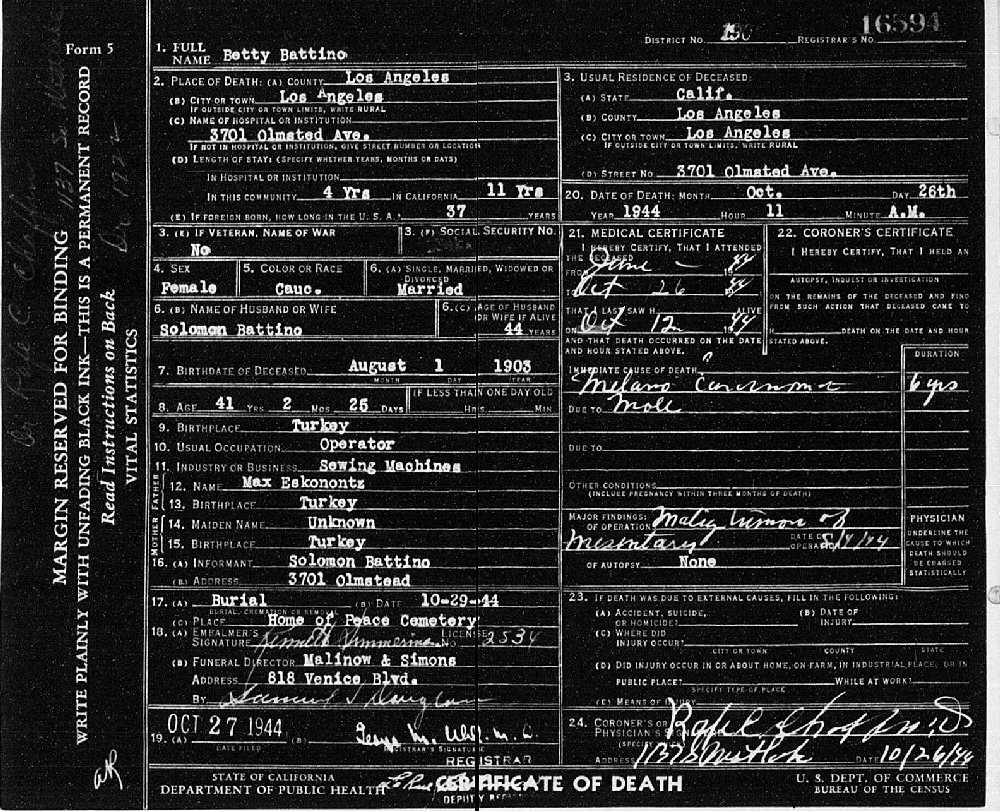 Form 5
MARGIN RESERVED FOR BINDING
WRITE PLAINLY WITH UNFADING BLACK INK—THIS IS A PERMANENT RECORD
Read Instructions on Back
VITAL STATISTICS
DISTRICT NO. REGISTRAR'S NO. 16594
1. FULL NAME Betty Battino
2. PLACE OF DEATH: (A) COUNTY Los Angeles
(B) CITY OR TOWN Los Angeles
IF OUTSIDE CITY OR TOWN LIMITS, WRITE RURAL
(C) NAME OF HOSPITAL OR INSTITUTION
3701 Olmsted Ave.
IF NOT IN HOSPITAL OR INSTITUTION, GIVE STREET NUMBER OR LOCATION
(D) LENGTH OF STAY: (SPECIFY WHETHER YEARS, MONTHS OR DAYS)
IN HOSPITAL OR INSTITUTION
IN THIS COMMUNITY 4 Yrs IN CALIFORNIA 11 Yrs
(E) IF FOREIGN BORN, HOW LONG IN THE U. S. A.? 37 YEARS
3. USUAL RESIDENCE OF DECEASED:
(A) STATE Calif.
(B) COUNTY Los Angeles
(C) CITY OR TOWN Los Angeles
IF OUTSIDE CITY OR TOWN LIMITS, WRITE RURAL
(D) STREET NO. 3701 Olmsted Ave.
3. (E) IF VETERAN, NAME OF WAR
No
3. (F) SOCIAL SECURITY NO.
4. SEX
Female
5. COLOR OR RACE
Cauc.
6. (A) SINGLE, MARRIED, WIDOWED OR DIVORCED
Married
6. (B) NAME OF HUSBAND OR WIFE
Solomon Battino
6. (C) AGE OF HUSBAND OR WIFE IF ALIVE
44 YEARS
7. BIRTHDATE OF DECEASED August 1 1903
MONTH DAY YEAR
8. AGE 41 YRS 2 MOS 25 DAYS
(IF LESS THAN ONE DAY OLD
HRS MIN
9. BIRTHPLACE Turkey
10. USUAL OCCUPATION Operator
11. INDUSTRY OR BUSINESS Sewing Machines
FATHER
12. NAME Max Eskonontz
13. BIRTHPLACE Turkey
MOTHER
14. MAIDEN NAME Unknown
15. BIRTHPLACE Turkey
16. (A) INFORMANT Solomon Battino
(B) ADDRESS 3701 Olmstead
17. (A) Burial (B) DATE 10-29-44
BURIAL, CREMATION OR REMOVAL
(C) PLACE Home of Peace Cemetery
18. (A) EMBALMER'S SIGNATURE LICENSE NO. 2534
(B) FUNERAL DIRECTOR Malinow & Simons
ADDRESS 818 Venice Blvd.
BY
19. (A) OCT 27 1944 (B)
DATE FILED REGISTRAR'S SIGNATURE
REGISTRAR
20. DATE OF DEATH: MONTH Oct. DAY 26th
YEAR 1944 HOUR 11 MINUTE A.M.
21. MEDICAL CERTIFICATE
I HEREBY CERTIFY, THAT I ATTENDED
THE DECEASED
FROM June 1944
TO Oct 26 44
THAT I LAST SAW H ALIVE
ON Oct 12 44
AND THAT DEATH OCCURRED ON THE DATE
AND HOUR STATED ABOVE.
22. CORONER'S CERTIFICATE
I HEREBY CERTIFY, THAT I HELD AN
AUTOPSY, INQUEST OR INVESTIGATION
ON THE REMAINS OF THE DECEASED AND FIND
FROM SUCH ACTION THAT DECEASED CAME TO
H DEATH ON THE DATE AND HOUR
STATED ABOVE.
DURATION
IMMEDIATE CAUSE OF DEATH
Melano Carcinoma 6 yrs
DUE TO Mole
DUE TO
OTHER CONDITIONS
(INCLUDE PREGNANCY WITHIN THREE MONTHS OF DEATH)
MAJOR FINDINGS:
OF OPERATION Malig tumor of
Mesentary DATE OF OPERATION
OF AUTOPSY None
PHYSICIAN
UNDERLINE THE
CAUSE TO WHICH
DEATH SHOULD
BE CHARGED
STATISTICALLY
23. IF DEATH WAS DUE TO EXTERNAL CAUSES, FILL IN THE FOLLOWING:
(A) ACCIDENT, SUICIDE, OR HOMICIDE? (B) DATE OF INJURY
(C) WHERE DID INJURY OCCUR?
CITY OR TOWN COUNTY STATE
(D) DID INJURY OCCUR IN OR ABOUT HOME, ON FARM, IN INDUSTRIAL PLACE, OR IN
PUBLIC PLACE? WHILE AT WORK?
SPECIFY TYPE OF PLACE
(E) MEANS OF INJURY
24. CORONER'S OR PHYSICIAN'S SIGNATURE
ADDRESS DATE 10/26/44
STATE OF CALIFORNIA
DEPARTMENT OF PUBLIC HEALTH
CERTIFICATE OF DEATH
DEPUTY
U. S. DEPT. OF COMMERCE
BUREAU OF THE CENSUS